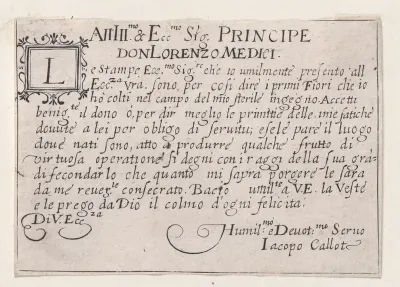 All Ill.mo & Ecc.mo Sig. PRINCIPE
DON LORENZO MEDICI.
L
e Stampe Ecc.mo Sig.re che io umilmente presento all
Ecc.za Vra. sono, per cosi dire i primi Fiori che io
ho colti nel campo del mio sterile ingegnio. Accetti
benig.te il dono ò, per dir meglio le primitie delle mie fatiche
devute à lei per obligo di servitu; e se le pare il luogo
dove nati sono, atto à produrre qualche frutto di
virtuosa operatione si degni con i raggi della sua gra:
di fecondarlo che quanto mi saprà porgere le sara
da me rever.te consecrato. Bacio umil.te à V.E. la Veste
e le prego da Dio il colmo d'ogni felicità.
Di V. Ecc.za
Humil.mo e Devot.mo Servo
Iacopo Callot.